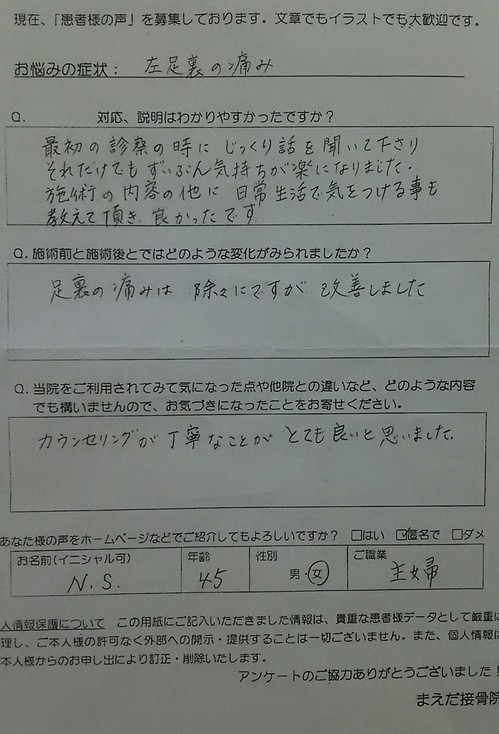 現在、「患者様の声」を募集しております。文章でもイラストでも大歓迎です。
お悩みの症状： 左足裏の痛み
Q. 対応、説明はわかりやすかったですか？
最初の診察の時に じっくり話を聞いて下さり
それだけでも ずいぶん気持ちが楽になりました.
施術の内容の他に 日常生活で気をつける事も
教えて頂き 良かったです
Q. 施術前と施術後とではどのような変化がみられましたか？
足裏の痛みは 除々にですが 改善しました
Q. 当院をご利用されてみて気になった点や他院との違いなど、どのような内容
でも構いませんので、お気づきになったことをお寄せください。
カウンセリングが 丁寧なことが とても良いと思いました.
あなた様の声をホームページなどでご紹介してもよろしいですか？ □はい ☑匿名で □ダメ
お名前(イニシャル可) 年齢 性別 ご職業
N.S. 45 男・女 主婦
人情報保護について この用紙にご記入いただきました情報は、貴重な患者様データとして厳重に
理し、ご本人様の許可なく外部への開示・提供することは一切ございません。また、個人情報に
本人様からのお申し出により訂正・削除いたします。
アンケートのご協力ありがとうございました！
まえだ接骨院